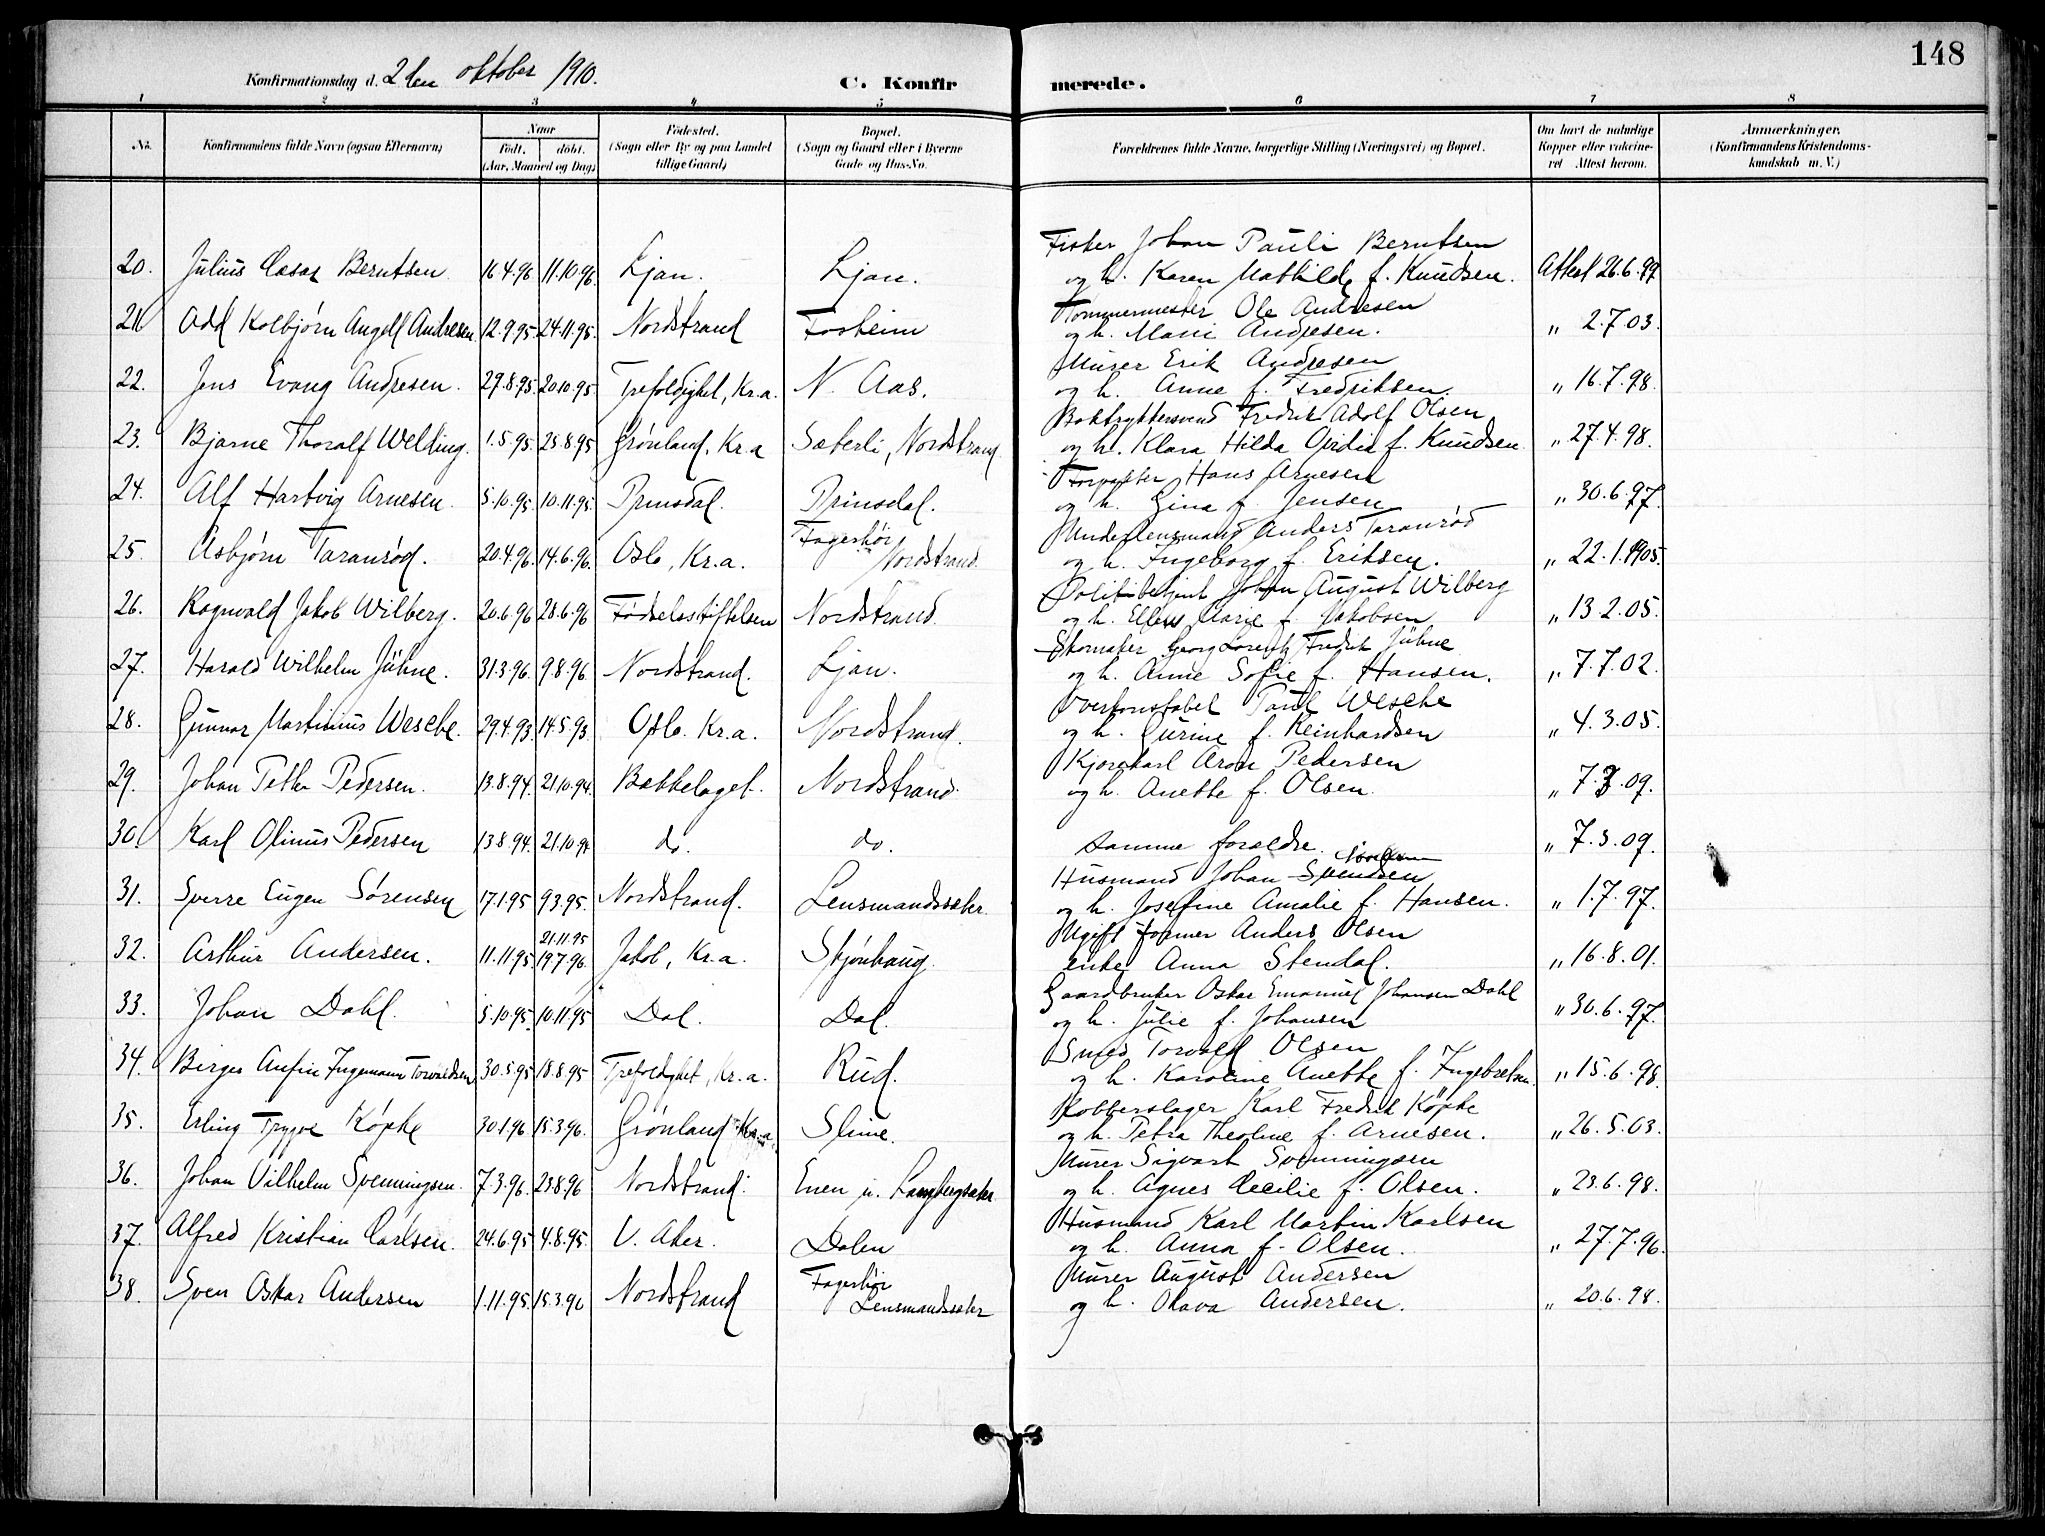 148
Konfirmationsdag d. 2den oktober 1910. C. Konfirmerede.
1 2 3 4 5 6 7 8
No. Konfirmandens fulde Navn (ogsaa Efternavn) Naar Født. døbt. (Aar, Maaned og Dag) Fødested. (Sogn eller By og paa Landet tillige Gaard) Bopæl. (Sogn og Gaard eller i Byerne Gade og Hus-No. Forældrenes fulde Navne, borgerlige Stilling (Næringsvei) og Bopæl. Om havt de naturlige Kopper eller vakcineret Attest herom. Anmærkninger, (Konfirmandens Kristendomskundskab m. V.)
Fisker Johan Pauli Berntsen
20. Julius Cæsar Berntsen. 16.4.96 11.10.96. Ljan. Ljan. og h. Karen Mathilde f. Knudsen. Attest 26.6.99
Tømmermester Ole Andresen
21. Odd Kolbjørn Angell Andresen 12.9.95. 24.11.95. Nordstrand Forheim og h. Marie Andresen. " 2.7.03.
Murer Erik Andresen
22. Jens Evang Andresen. 29.8.95. 20.10.95. Trefoldighet, Kr.a. N. Aas. og h. Anne f. Fredriksen. " 16.7.98.
Boktrykkersvend Fredrik Adolf Olsen
23. Bjarne Thoralf Welling. 1.5.95. 25.8.95 Grønland, Kr.a Sæterli, Nordstrand og h. Klara Hilda Ovidia f. Knudsen " 27.4.98.
Forpakter Hans Arnesen
24. Alf Hartvig Arnesen. 5.10.95. 10.11.95. Prinsdal. Prinsdal. og h. Gina f. Jensen " 30.6.97.
Underlensmand Anders Taranrød
25. Asbjørn Taranrød. 20.4.96. 14.6.96. Oslo, Kr.a. Fagerhøi Nordstrand. og h. Ingeborg f. Eriksen. " 22.1.1905.
Politibetjent Johan August Wilberg
26. Ragnvald Jakob Wilberg. 20.6.96 28.6.96 Fødselsstiftelsen Nordstrand. og h. Ellen Marie f. Jakobsen " 13.2.05.
Skomaker Georg Lorentz Fredrik Jühne
27. Harald Wilhelm Jühne. 31.3.96. 9.8.96. Nordstrand. Ljan. og h. Anne Sofie f. Hansen. " 7.7.02.
Overkonstabel Paul Wesche
28. Gunnar Martinius Wesche. 29.4.93. 14.5.93. Oslo. Kr.a. Nordstrand. og h. Gurine f. Reinhardsen " 4.3.05.
Kjørekarl Aron Pedersen
29. Johan Petter Pedersen. 13.8.94. 21.10.94. Bækkelaget. Nordstrand. og h. Anette f. Olsen. " 7.3.09.
30. Karl Olinus Pedersen 13.8.94. 21.10.94. do. do. samme forældre. " 7.3.09.
Husmand Johan Svendsen
31. Sverre Eugen Sørensen 17.1.95 9.3.95. Nordstrand. Lensmandssæter. og h. Josefine Amalie f. Hansen. " 1.7.97.
21.11.95 Ugift former Anders Olsen
32. Arthur Andersen. 11.11.95. 19.7.96. Jakob, Kr.a. Skjønhaug. enke Anna Stendal. " 16.8.01.
Gaardbruker Oskar Emanuel Johansen Dahl
33. Johan Dahl. 5.10.95. 10.11.95 Dal. Dal. og h. Julie f. Johansen " 30.6.97.
Smed Torvald Olsen
34. Birger Anfin Ingemann Torvaldsen 30.5.95 18.8.95 Trefoldighet, Kr.a. Rud. og h. Karoline Anette f. Ingebretsen. " 15.6.98.
Kobberslager Karl Fredrik Köpke
35. Erling Trygve Köpke 30.1.96 15.3.96. Grønland Kr.a. Slime. og h. Petra Theoline f. Arnesen. " 26.5.03.
Murer Sigvart Svenningsen
36. Johan Vilhelm Svenningsen. 7.3.96. 23.8.96 Nordstrand. Enen u. Langbergsæter og h. Agnes Cecilie f. Olsen. " 23.6.98.
Husmand Karl Martin Karlsen
37. Alfred Kristian Carlsen. 24.6.95 4.8.95. V. Aker. Dalen og h. Anna f. Olsen. " 27.7.96.
Murer August Andersen
38. Sven Oskar Andersen 1.11.95. 15.3.96 Nordstrand Fagerhøi Lensmandssæter og h. Olava Andersen. " 20.6.98.